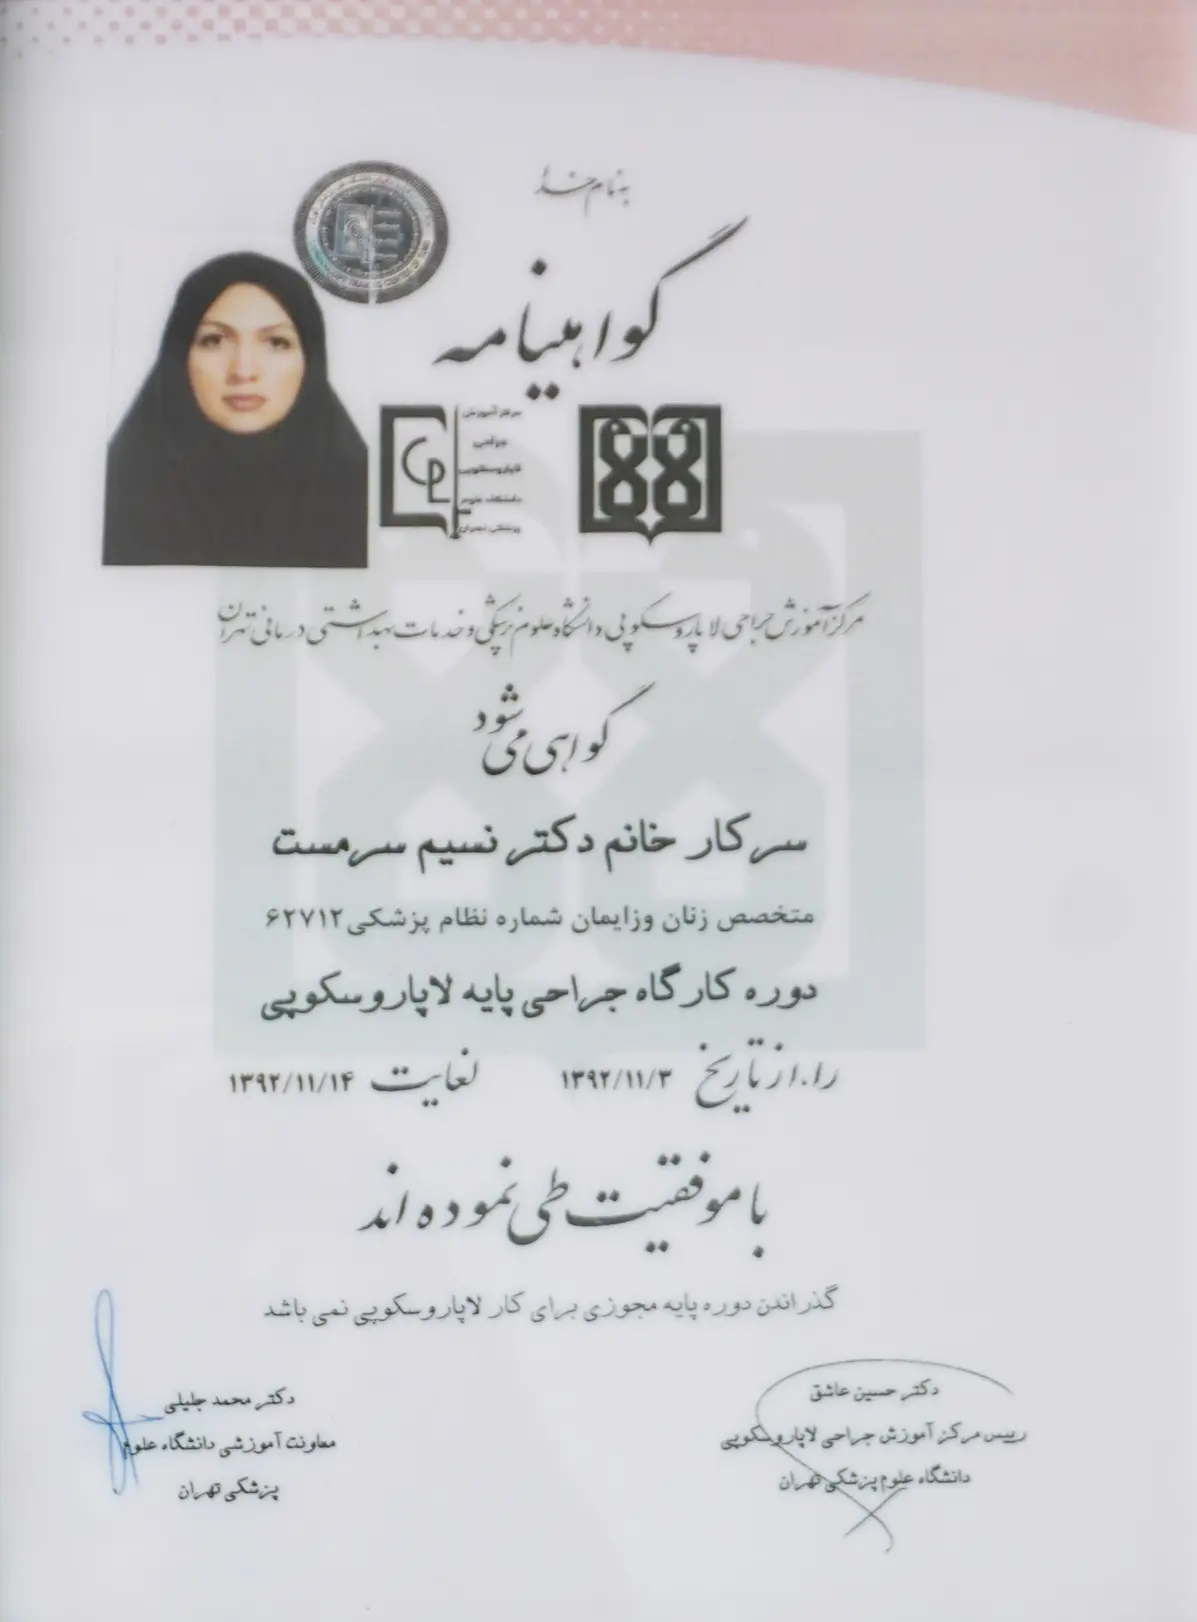 به نام خدا
گواهینامه
مرکز آموزش
جراحی
لاپاروسکوپی
دانشگاه علوم
پزشکی تهران
مرکز آموزش جراحی لاپاروسکوپی دانشگاه علوم پزشکی و خدمات بهداشتی درمانی تهران
گواهی می شود
سرکار خانم دکتر نسیم سرمست
متخصص زنان وزایمان شماره نظام پزشکی ۶۲۷۱۲
دوره کارگاه جراحی پایه لاپاروسکوپی
را، از تاریخ ۱۳۹۲/۱۱/۳ لغایت ۱۳۹۲/۱۱/۱۴
با موفقیت طی نموده اند
گذراندن دوره پایه مجوزی برای کار لاپاروسکوپی نمی باشد
دکتر حسین عاشق
رییس مرکز آموزش جراحی لاپاروسکوپی
دانشگاه علوم پزشکی تهران
دکتر محمد جلیلی
معاونت آموزشی دانشگاه علوم
پزشکی تهران